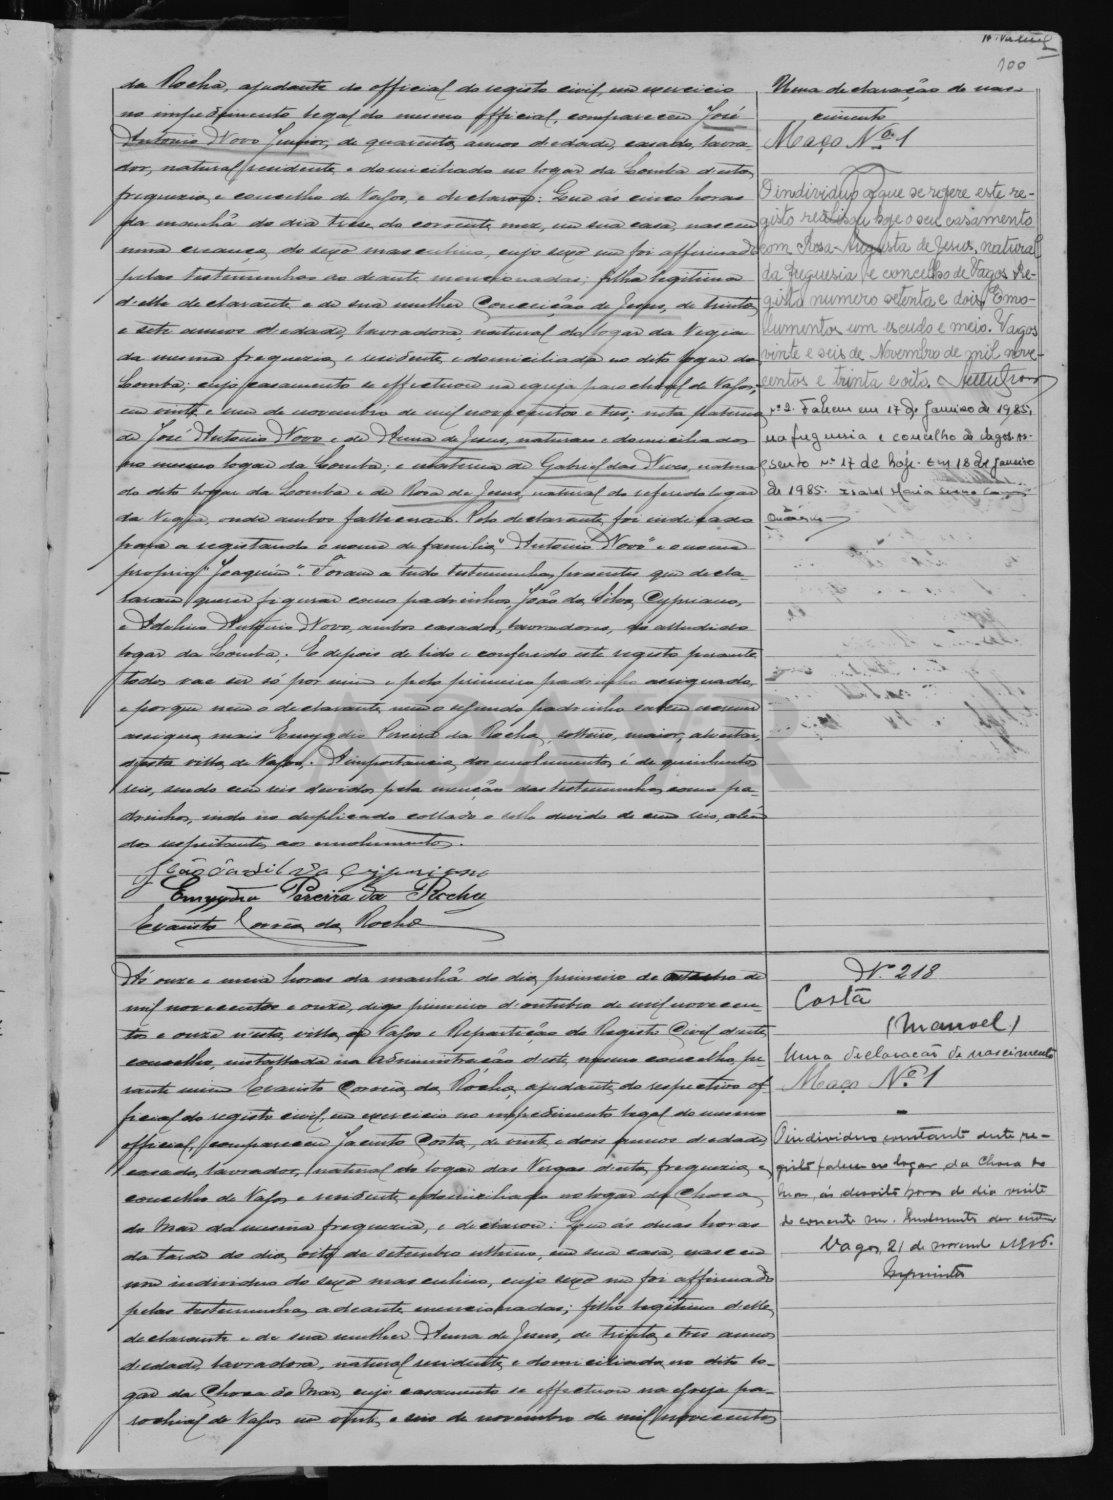 100
da Rocha, ajudante do official do registo civil, em exercicio
no impedimento legal do mesmo official, compareceu José
Antonio Novo Junior, de quarenta annos d'edade, casado, lavra-
dor, natural, residente e domiciliado no logar da Lomba desta
freguezia e concelho de Vagos, e declarou: Que ás cinco horas
da manhã do dia treze do corrente mez, em sua casa, nasceu
uma creança do sexo masculino, cujo sexo me foi affirmado
pelas testemunhas ao deante mencionadas; filha legitima
d'elle declarante e de sua mulher Conceição de Jesus, de trinta
e sete annos d'edade, lavradora, natural do logar da Vegia
da mesma freguezia, e residente e domiciliada no dito logar da
Lomba; cujo casamento se effectuou na egreja parochial de Vagos,
em vinte e um de novembro de mil novecentos e tres; neta paterna
de José Antonio Novo e de Anna de Jesus, naturaes e domiciliados
no mesmo logar da Lomba; e materna de Gabriel das Neves, natural
do dito logar da Lomba e de Rosa de Jesus, natural do referido logar
da Vegia, onde ambos falleceram. Pelo declarante foi indicado
para a registando o nome de familia "Antonio Novo" e o nome
proprio "Joaquim". Foram a tudo testemunhas presentes que decla-
raram querer figurar como padrinhos, João da Silva Cypriano,
e Adelino Antonio Novo, ambos casados, lavradores, do alludido
logar da Lomba. E depois de lido e conferido este registo perante
todos vae ser só por mim e pelo primeiro padrinho assignado,
e porque nem o declarante, nem o segundo padrinho sabem escrever
assigna mais Emygdio Pereira da Rocha, solteiro, maior,
d'esta villa de Vagos. A importancia dos emolumentos é de quinhentos
reis, sendo cem reis devidos pela menção das testemunhas como pa-
drinhos, indo no duplicado collado o sello devido de cem reis, alem
dos respeitantes aos emolumentos.
João da Silva Cypriano
Emygdio Pereira da Rocha
Evaristo Corrêa da Rocha
Uma declaração de nas-
cimento
Maço Nº 1
O individuo a que se refere este re-
gisto realisou hoje o seu casamento
com Rosa Augusta de Jesus, natural
da freguesia e concelho de Vagos. Re-
gisto numero setenta e dois. Emo-
lumentos um escudo e meio. Vagos
vinte e seis de Novembro de mil nove-
centos e trinta e oito.
nº 2. Faleceu em 17 de Janeiro de 1985,
na freguesia e concelho de Vagos. As-
sento nº 17 de hoje. Em 18 de Janeiro
de 1985. Isabel Maria
Ás onze e meia horas da manhã do dia primeiro de outubro de
mil novecentos e onze, digo primeiro d'outubro de mil novecen-
tos e onze nesta villa de Vagos e Repartição do Registo Civil deste
concelho, installada na Administração deste mesmo concelho, pe-
rante mim Evaristo Corrêa da Rocha, ajudante do respectivo of-
ficial do registo civil, em exercicio no impedimento legal do mesmo
official, compareceu Jacinto Costa, de vinte e dois annos d'edade,
casado, lavrador, natural do logar das Vergas desta freguezia e
concelho de Vagos e residente e domiciliado no logar da Choca
do Mar da mesma freguezia, e declarou: Que ás duas horas
da tarde do dia oito de setembro ultimo, em sua casa, nasceu
um individuo do sexo masculino, cujo sexo me foi affirmado
pelas testemunhas adeante mencionadas; filho legitimo d'elle
declarante e de sua mulher Anna de Jesus, de trinta e tres annos
d'edade, lavradora, natural, residente e domiciliada no dito lo-
gar da Choca do Mar, cujo casamento se effectuou na egreja pa-
rochial de Vagos em vinte e seis de novembro de mil novecentos
Nº 218
Costa
(Manoel)
Uma declaração de nascimento
Maço Nº 1
O individuo constante deste re-
gisto faleceu no logar da Choca do
Mar, ás dezoito horas do dia vinte
do corrente
Vagos, 21 de
ADAVR